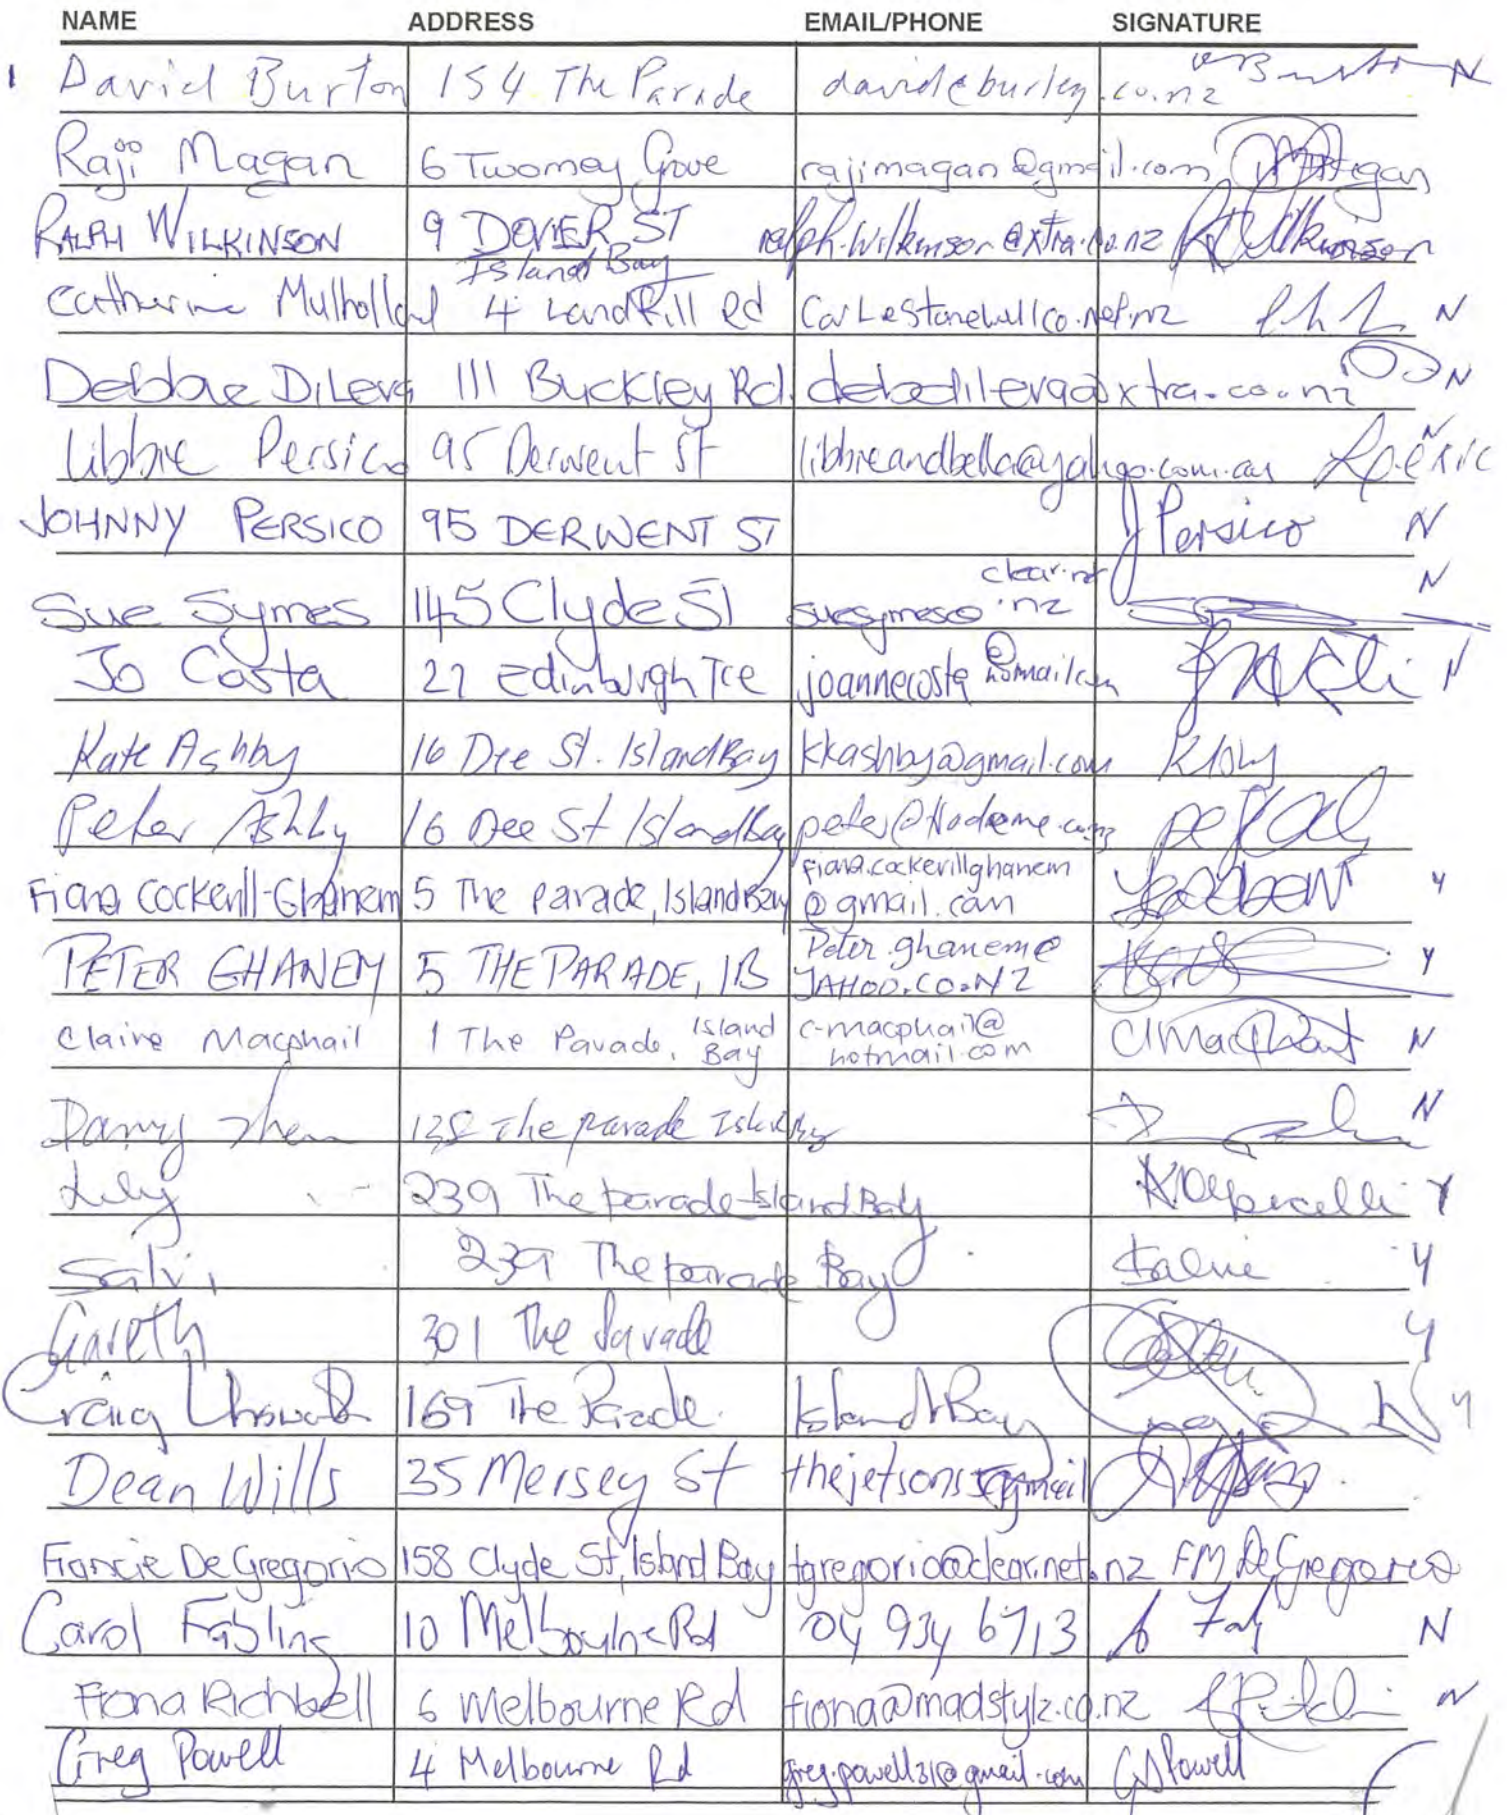 NAME ADDRESS EMAIL/PHONE SIGNATURE
1 David Burton 154 The Parade david@burley.co.nz Burton N
Raji Magan 6 Twomey Grove rajimagan@gmail.com Magan
RALPH WILKINSON 9 DOVER ST ralph.wilkinson@xtra.co.nz Wilkinson
Island Bay
Catherine Mulholland 4 Landfill Rd N
Debbie DiLeva 111 Buckley Rd. debdileva@xtra.co.nz N
Libbie Persico 95 Derwent St libbieandbella@yahoo.com.au N
JOHNNY PERSICO 95 DERWENT ST J Persico N
clear.net N
Sue Symes 145 Clyde St suesymes@ .nz
Jo Costa 27 Edinburgh Tce joannecosta @hotmail.com N
Kate Ashby 16 Dee St. Island Bay kkashby@gmail.com
Peter Ashby 16 Dee St Island Bay
fiona.cockerillghanem
Fiona Cockerill-Ghanem 5 The Parade, Island Bay @gmail.com Y
Peter.ghanem@
PETER GHANEM 5 THE PARADE, IB YAHOO.CO.NZ Y
Claire Macphail 1 The Parade, Island Bay c-macphail@ N
hotmail.com
Danny The Parade N
Lily 239 The parade Island Bay Y
Salvi 239 The parade Bay Salvie Y
Gareth 301 The Parade Y
Craig 169 The Parade. Island Bay N Y
Dean Wills 35 Mersey St
Francie De Gregorio 158 Clyde St, Island Bay fgregorio@clear.net.nz FM DeGregorio
Carol Fabling 10 Melbourne Rd 04 934 6713 N
Fiona Richbell 6 Melbourne Rd fiona@madstylz.co.nz N
Greg Powell 4 Melbourne Rd greg.powell31@gmail.com G Powell